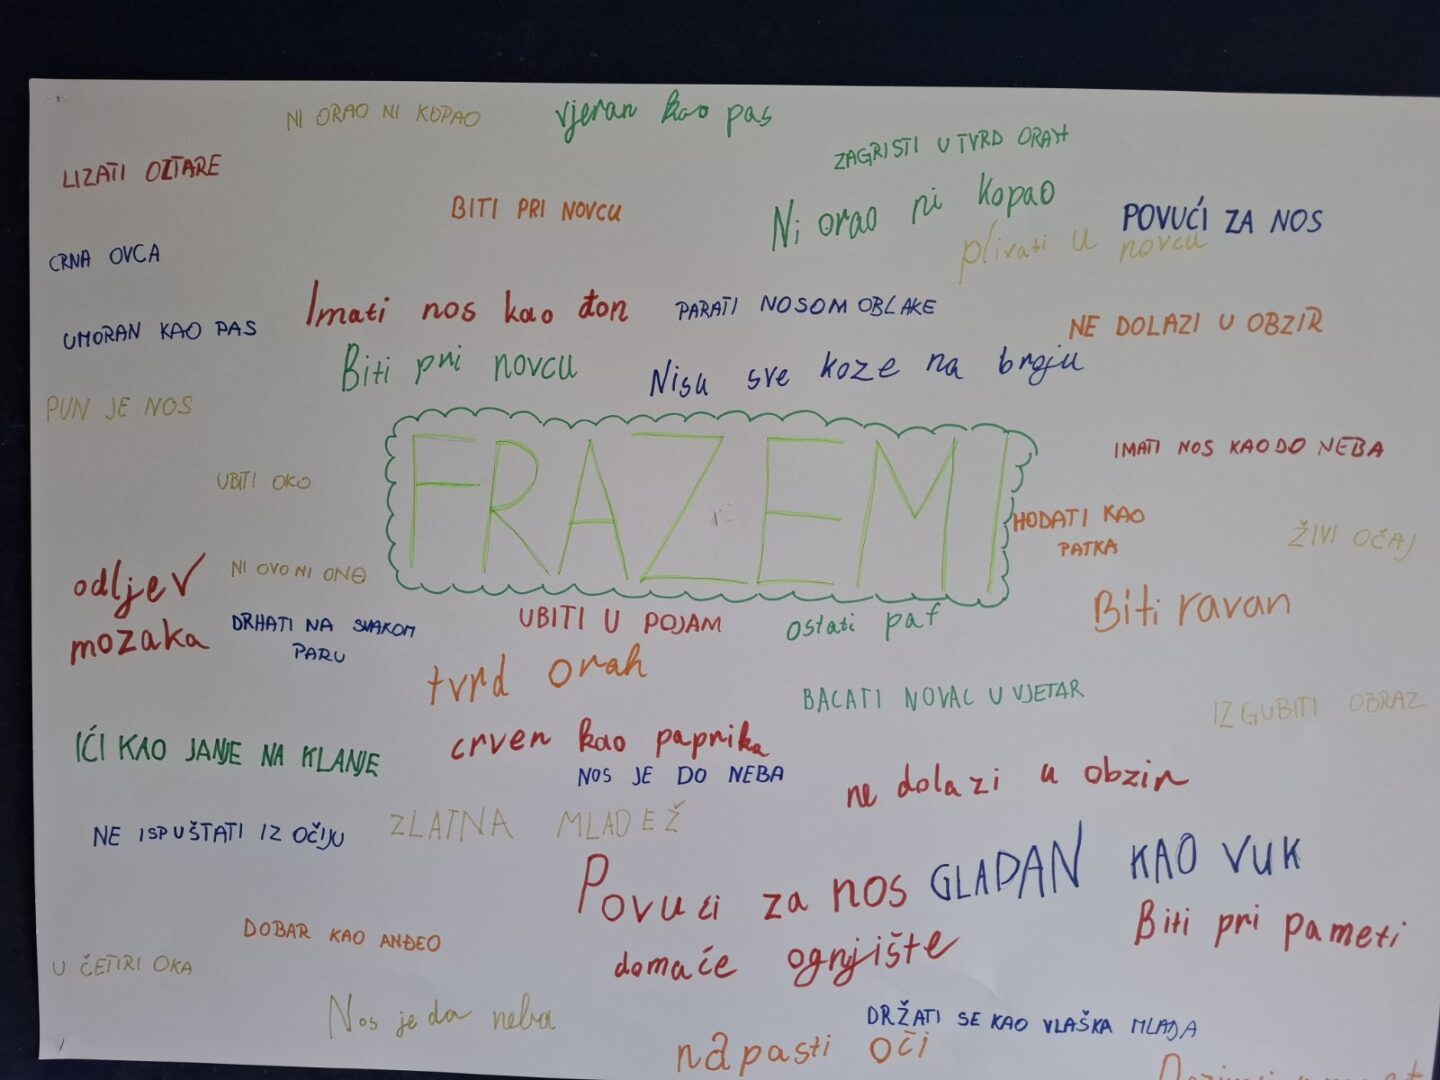 NI ORAO NI KOPAO
vjeran kao pas
ZAGRISTI U TVRD ORAH
LIZATI OLTARE
BITI PRI NOVCU
Ni orao ni kopao
POVUĆI ZA NOS
plivati u novcu
CRNA OVCA
Imati nos kao đon
PARATI NOSOM OBLAKE
NE DOLAZI U OBZIR
UMORAN KAO PAS
Biti pri novcu
Nisu sve koze na broju
PUN JE NOS
FRAZEMI
IMATI NOS KAO DO NEBA
UBITI OKO
HODATI KAO
PATKA
ŽIVI OČAJ
odljev
mozaka
NI OVO NI ONO
DRHATI NA SVAKOM
PARU
UBITI U POJAM
ostati paf
Biti ravan
tvrd orah
BACATI NOVAC U VJETAR
IZGUBITI OBRAZ
IĆI KAO JANJE NA KLANJE
crven kao paprika
NOS JE DO NEBA
ne dolazi u obzir
NE ISPUŠTATI IZ OČIJU
ZLATNA MLADEŽ
Povući za nos
GLADAN KAO VUK
Biti pri pameti
DOBAR KAO ANĐEO
domaće ognjište
U ČETIRI OKA
Nos je do neba
DRŽATI SE KAO VLAŠKA MLADA
napasti oči